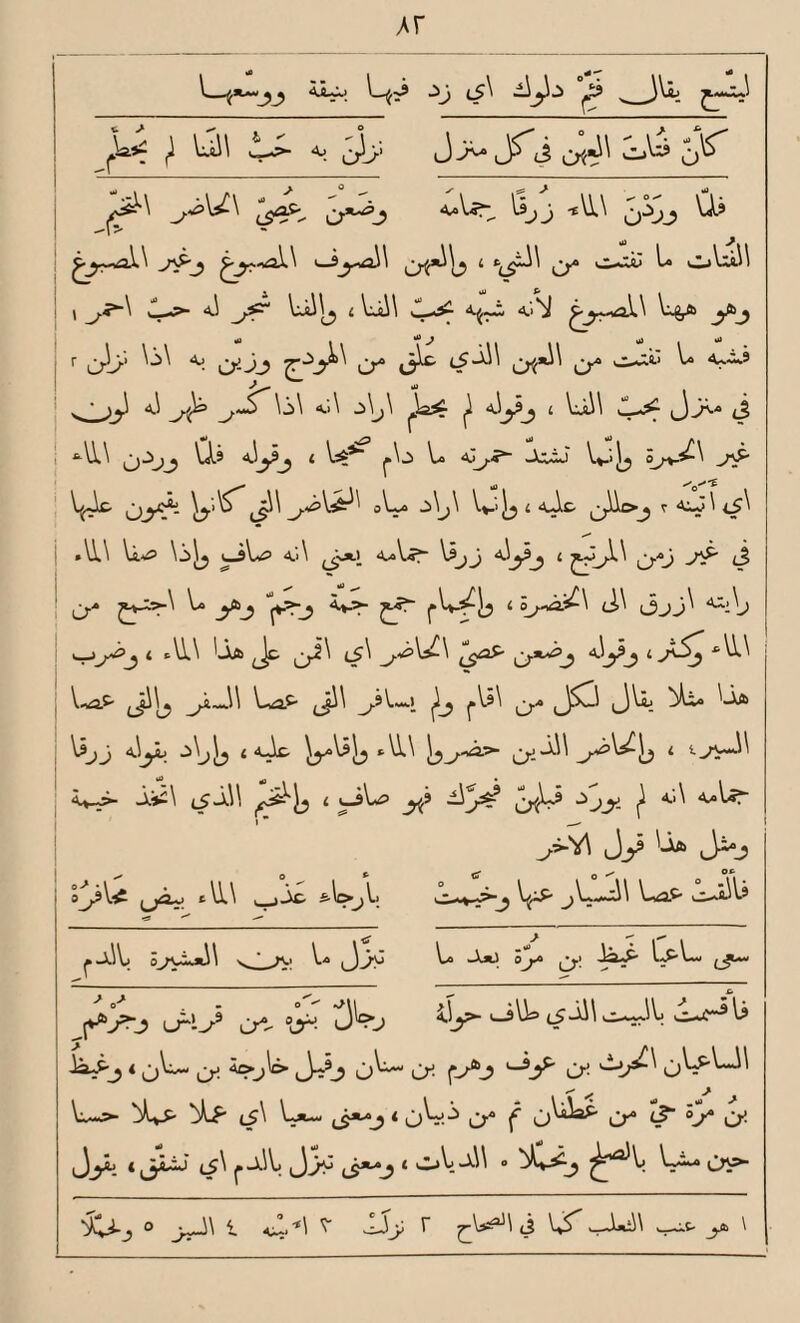 ٨٢
ليتسع يقال فئّم دلوك اي زد فيها بنيقة ووسعها
كأن فتات العهن في كل منزل نزلن به حب الفنا لم يحطم
فلما وردن الماء زرقا جمامه وضعن عصي الحاضر المتخيم
الفتات ما تفتت من الشيء ، والعهن الصوف المصبوغ وغير المصبوغ
وهو ههنا المصبوغ لانه شبهه بحب الفنا ، والفنا شجر له حب احمر ١
فشبه ما تفتت من العهن الذي علق من الهودج وزين به اذا نزلن ٢
في منزل بحب الفنا ، وقوله لم يحطم اراد انه اذا كسر ظهر له لون
غير الحمرة وانما تشتد حمرته ما دام صحيحا ، وقوله فلما وردن الماء
اي اتينه ٣ وحللن عليه ، وانما اراد مياه المحاضر التي كانوا يقيمون عليها
في غير زمن المرتبع ، وقوله زرقا جمامه يعني انه صاف واذا صفا الماء
رايته ازرق الى الخضرة ، والجمام جمع جمة وجم وهو ما اجتمع من
الماء وكثر ، وقوله وضعن عصي الحاضر اي اقمن على هذا الماء وضرب
هذا مثلا يقال لكل من اقام ولم يسافر القى عصا السفر والقى عصا
٤ ، والحاضر الذين حضروا الماء واقاموا عليه ، واراد بقوله زرقا
جمامه انه لم يورد قبلهن فيحرك فهو صاف ، والمتخيم الذي اتخذ خيمة
ومثل هذا قول الآخر
فألقت عصا التسيار عنها وخيمت بأرجاء عذب الماء بيض محافره
سعى ساعيا غيظ بن مرة بعد ما تبزل ما بين العشيرة بالدم
فأقسمت بالبيت الذي طاف حوله رجال بنوه من قريش وجرهم
الساعيان الحرث بن عوف وهرم بن سنان وقيل خارجة بن سنان ، وغيظ
بن مرة حي من غطفان ثم من ذبيان ، ومعنى سعيا اي عملا عملا حسنا
حين مشيا بالصلح وتحملا ٥ الديات ، ومعنى تبزل بالدم اي تشقق ، يقول
١ هو عنب الثعلب كما في الصحاح ٢ نزلت ٣ اتيته ٤ السير ٥ وحملا